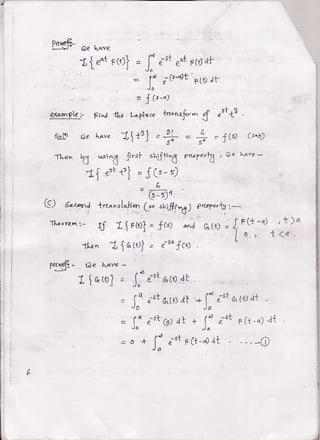 Proof:- We have
L{e^{at} F(t)} = ∫_0^∞ e^{-st} e^{at} F(t) dt
= ∫_0^∞ e^{-(s-a)t} F(t) dt
= f(s-a)
example:- Find the Laplace transform of e^{5t} t^3.
Sol^n We have L{t^3} = 3!/s^4 = 6/s^4 = f(s) (s>0)
Then by using first shifting property, we have—
L{e^{5t} t^3} = f(s-5)
= 6/(s-5)^4.
(C) Second translation (or shifting) property:—
Theorem:- If L{F(t)} = f(s) and G(t) = { F(t-a), t>a
0, t<a.
then L{G(t)} = e^{-sa} f(s).
proof:- We have—
L{G(t)} = ∫_0^∞ e^{-st} G(t) dt.
= ∫_0^a e^{-st} G(t) dt + ∫_a^∞ e^{-st} G(t) dt.
= ∫_0^a e^{-st} (0) dt + ∫_a^∞ e^{-st} F(t-a) dt.
= 0 + ∫_a^∞ e^{-st} F(t-a) dt. ----①
6